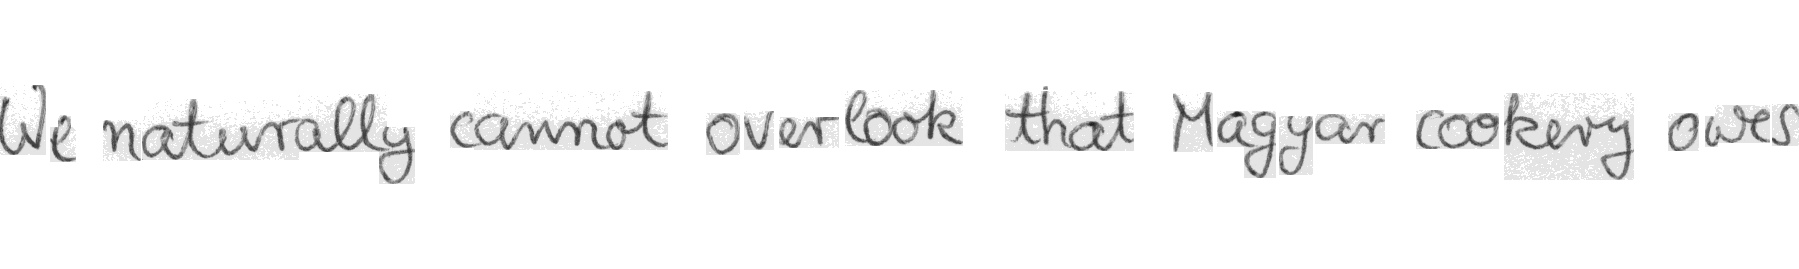 We naturally cannot overlook that Magyar cookery owes